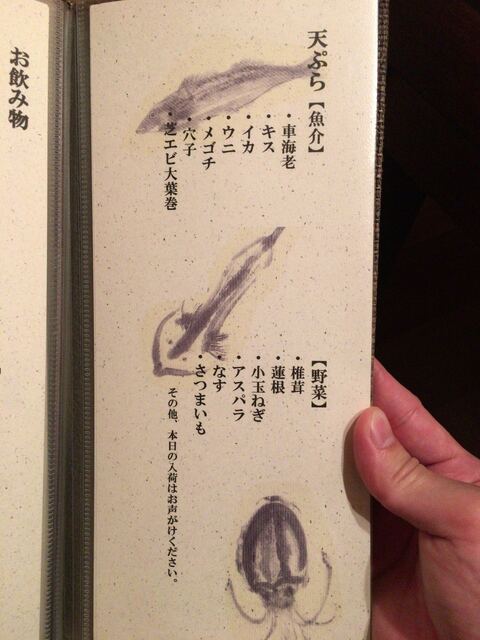 天ぷら【魚介】
・車海老
・キス
・イカ
・ウニ
・メゴチ
・穴子
・芝エビ大葉巻
【野菜】
・椎茸
・蓮根
・小玉ねぎ
・アスパラ
・なす
・さつまいも
その他、本日の入荷はお声がけください。
お飲み物